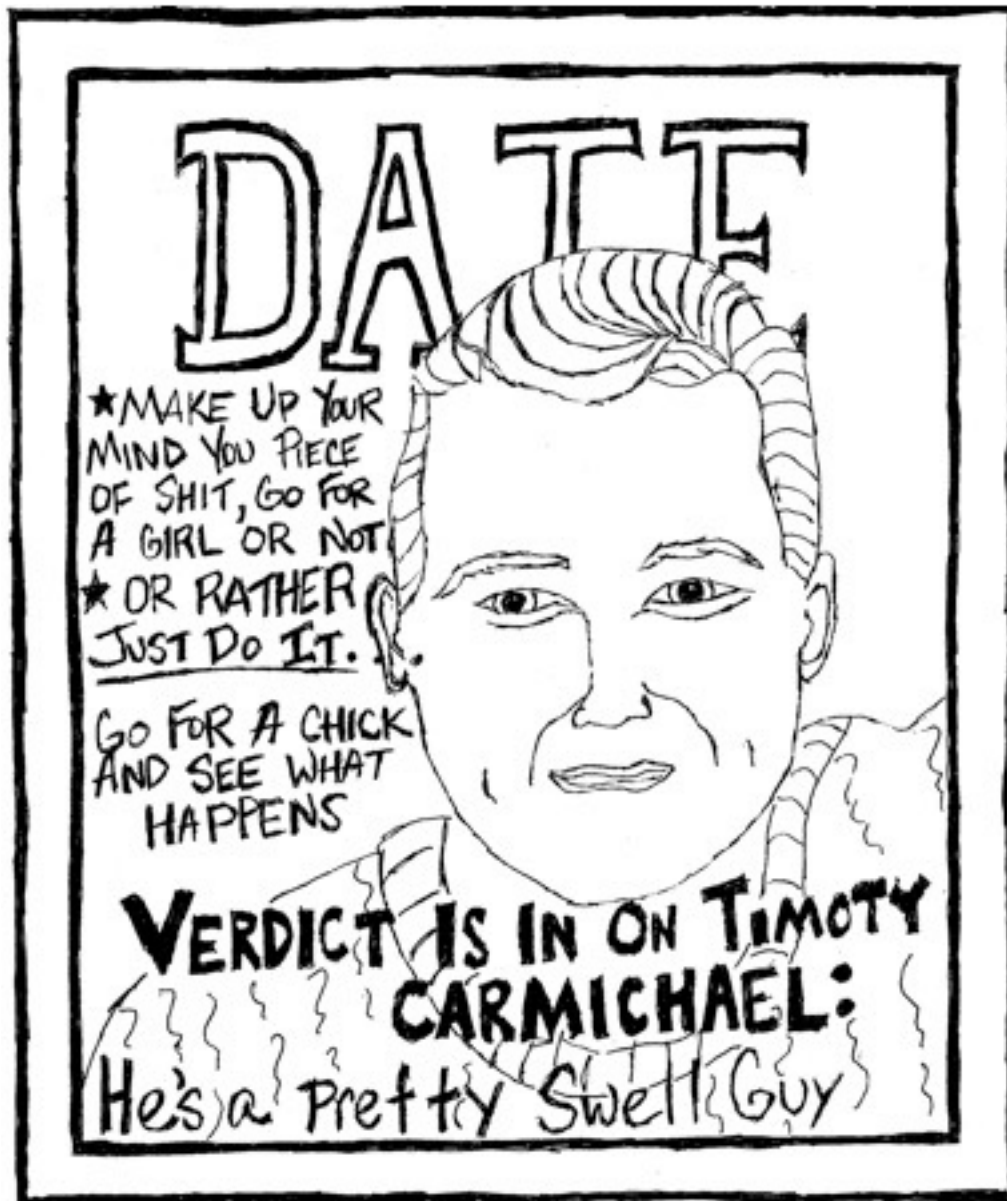 DATE
★MAKE UP YOUR
MIND YOU PIECE
OF SHIT, GO FOR
A GIRL OR NOT
★ OR RATHER
JUST DO IT...
GO FOR A CHICK
AND SEE WHAT
HAPPENS
VERDICT IS IN ON TIMOTY
CARMICHAEL:
He's a Pretty Swell Guy